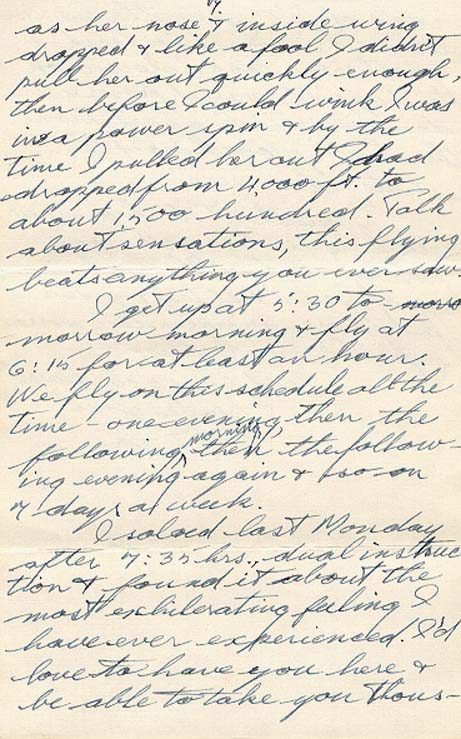 4.
as her nose & inside wing
dropped & like a fool I didn't
pull her out quickly enough,
then before I could wink I was
in a power spin & by the
time I pulled her out I had
dropped from 4000 ft. to
about 1,500 hundred. Talk
about sensations, this flying
beats anything you ever saw.
I get up at 5:30 to-
morrow morning & fly at
6:15 for at least an hour.
We fly on this schedule all the
time - one evening then the
morning
following, then the follow-
ing evening again & so on
7 days a week.
I soloed last Monday
after 7:35 hrs., dual instruc
tion & found it about the
most exhilerating feeling I
have ever experienced! I'd
love to have you here &
be able to take you thous-